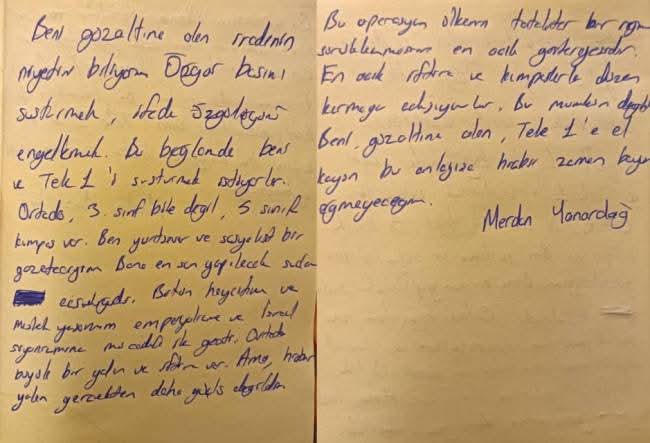 Beni gözaltına alan iradenin
niyetini biliyorum Özgür basını
susturmak, ifade özgürlüğünü
engellemek. Bu bağlamda beni
ve Tele 1'i susturmak istiyorlar.
Ortada, 3. sınıf bile değil, 5. sınıf
kumpas var. Ben yurtsever ve sosyalist bir
gazeteciyim Bana en son yapılacak suçlama
casusluktur. Bütün hayatım ve
meslek yaşamım emperyalizme ve İsrail
siyonizmine mücadele ile geçti. Ortada
büyük bir yalan ve iftira var. Ama, hiçbir
yalan gerçekten daha güçlü değildir.
Bu operasyon ülkenin totaliter bir rejime
sürüklenmesinin en açık göstergesidir.
En açık iftira ve kumpaslarla düzen
kurmaya çalışıyorlar. Bu mümkün değil
Beni, gözaltına alan, Tele 1'e el
koyan bu anlayışa hiçbir zaman boyun
eğmeyeceğim.
Merdan Yanardağ